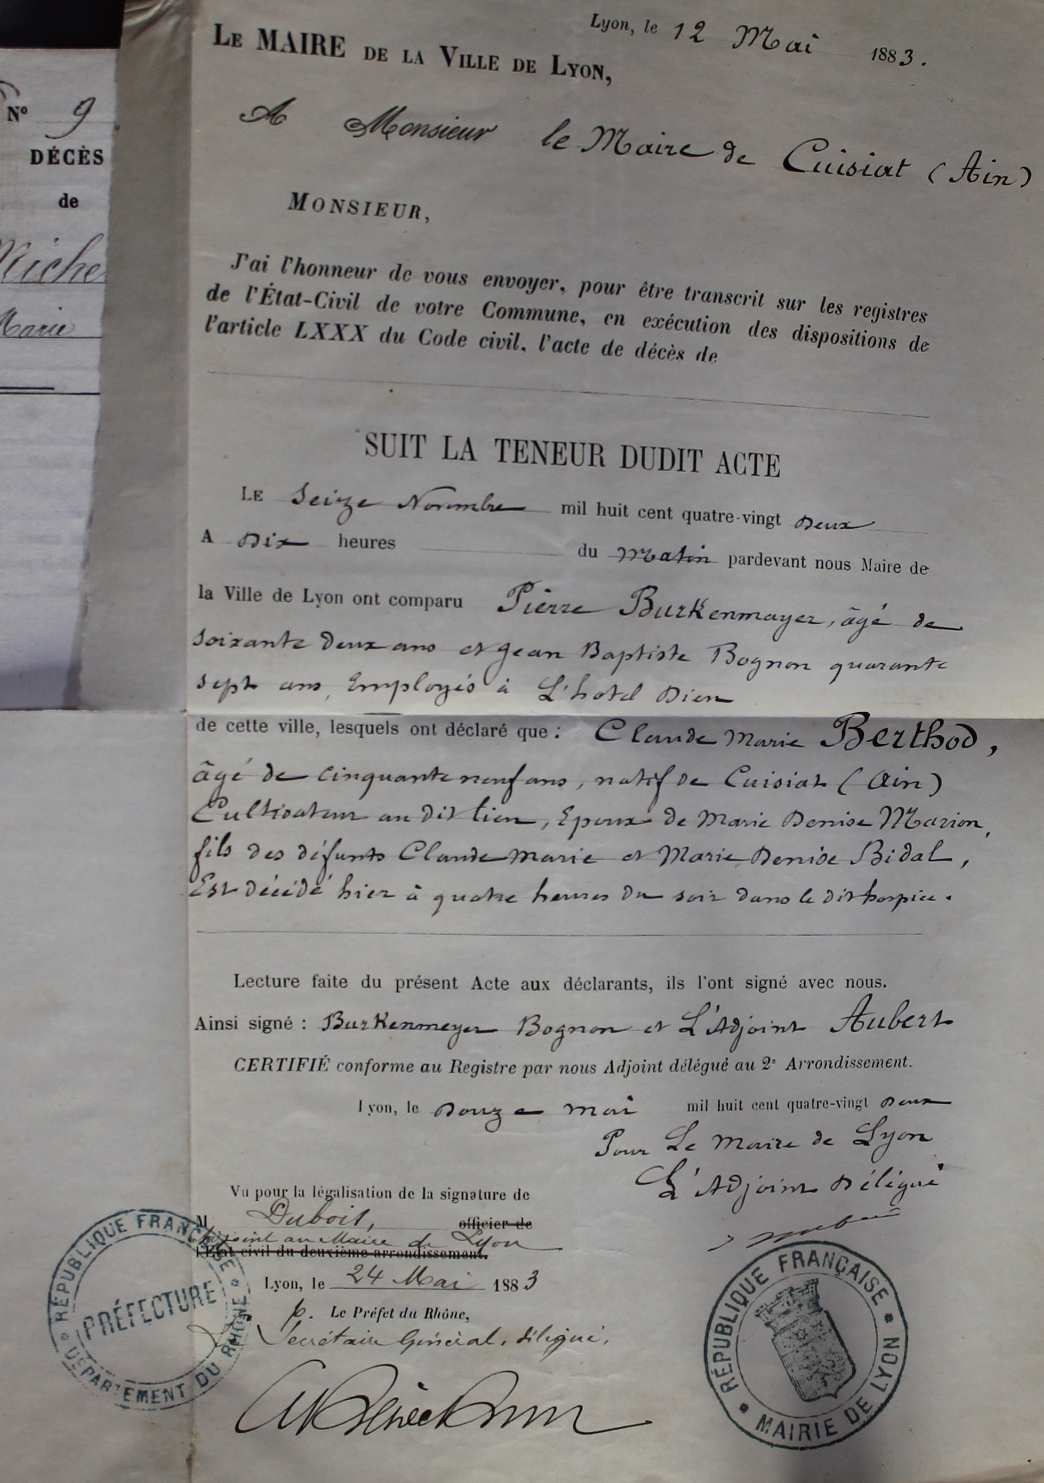 Nº 9
DÉCÈS
de
Miche
Marie
Lyon, le 12 Mai 1883.
LE MAIRE DE LA VILLE DE LYON,
A Monsieur le Maire de Cuisiat (Ain)
MONSIEUR,
J'ai l'honneur de vous envoyer, pour être transcrit sur les registres
de l'État-Civil de votre Commune, en exécution des dispositions de
l'article LXXX du Code civil, l'acte de décès de
SUIT LA TENEUR DUDIT ACTE
LE Seize Novembre mil huit cent quatre-vingt Deux
A Dix heures du Matin pardevant nous Maire de
la Ville de Lyon ont comparu Pierre Burkenmayer, âgé de
soixante Deux ans et Jean Baptiste Bognon quarante
sept ans, Employés à L'hotel Dieu
de cette ville, lesquels ont déclaré que : Claude Marie Berthod,
âgé de cinquante neuf ans, natif de Cuisiat (Ain)
Cultivateur au dit lieu, Epoux de Marie Denise Marion,
fils des défunts Claude Marie et Marie Denise Bidal,
Est décédé hier à quatre heures du soir dans le dit hospice.
Lecture faite du présent Acte aux déclarants, ils l'ont signé avec nous.
Ainsi signé : Burkenmeyer Bognon et L'Adjoint Aubert
CERTIFIÉ conforme au Registre par nous Adjoint délégué au 2e Arrondissement.
Lyon, le Douze mai mil huit cent quatre-vingt Deux
Pour Le Maire de Lyon
L'Adjoint Délégué
Vu pour la légalisation de la signature de
M Dubois, officier de
adjoint au Maire de Lyon
l'État civil du deuxième arrondissement.
Lyon, le 24 Mai 1883
p. Le Préfet du Rhône,
Secrétaire Général, délégué,
RÉPUBLIQUE FRANÇAISE
PRÉFECTURE
DÉPARTEMENT DU RHÔNE
RÉPUBLIQUE FRANÇAISE
MAIRIE DE LYON